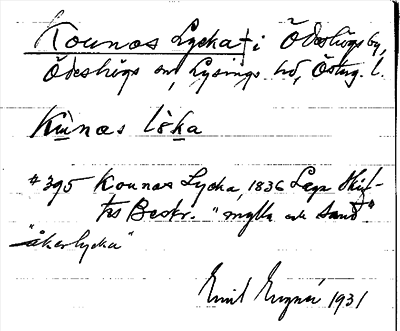 Kounas Lycka † i Ödeshögs by,
Ödeshögs sn, Lysings hd, Österg. l.
Kùnas lỳka
# 395 Kounas Lycka, 1836 Laga Skif-
ts Beskr. "mylla och sand"
"åkerlycka"
Emil 1931